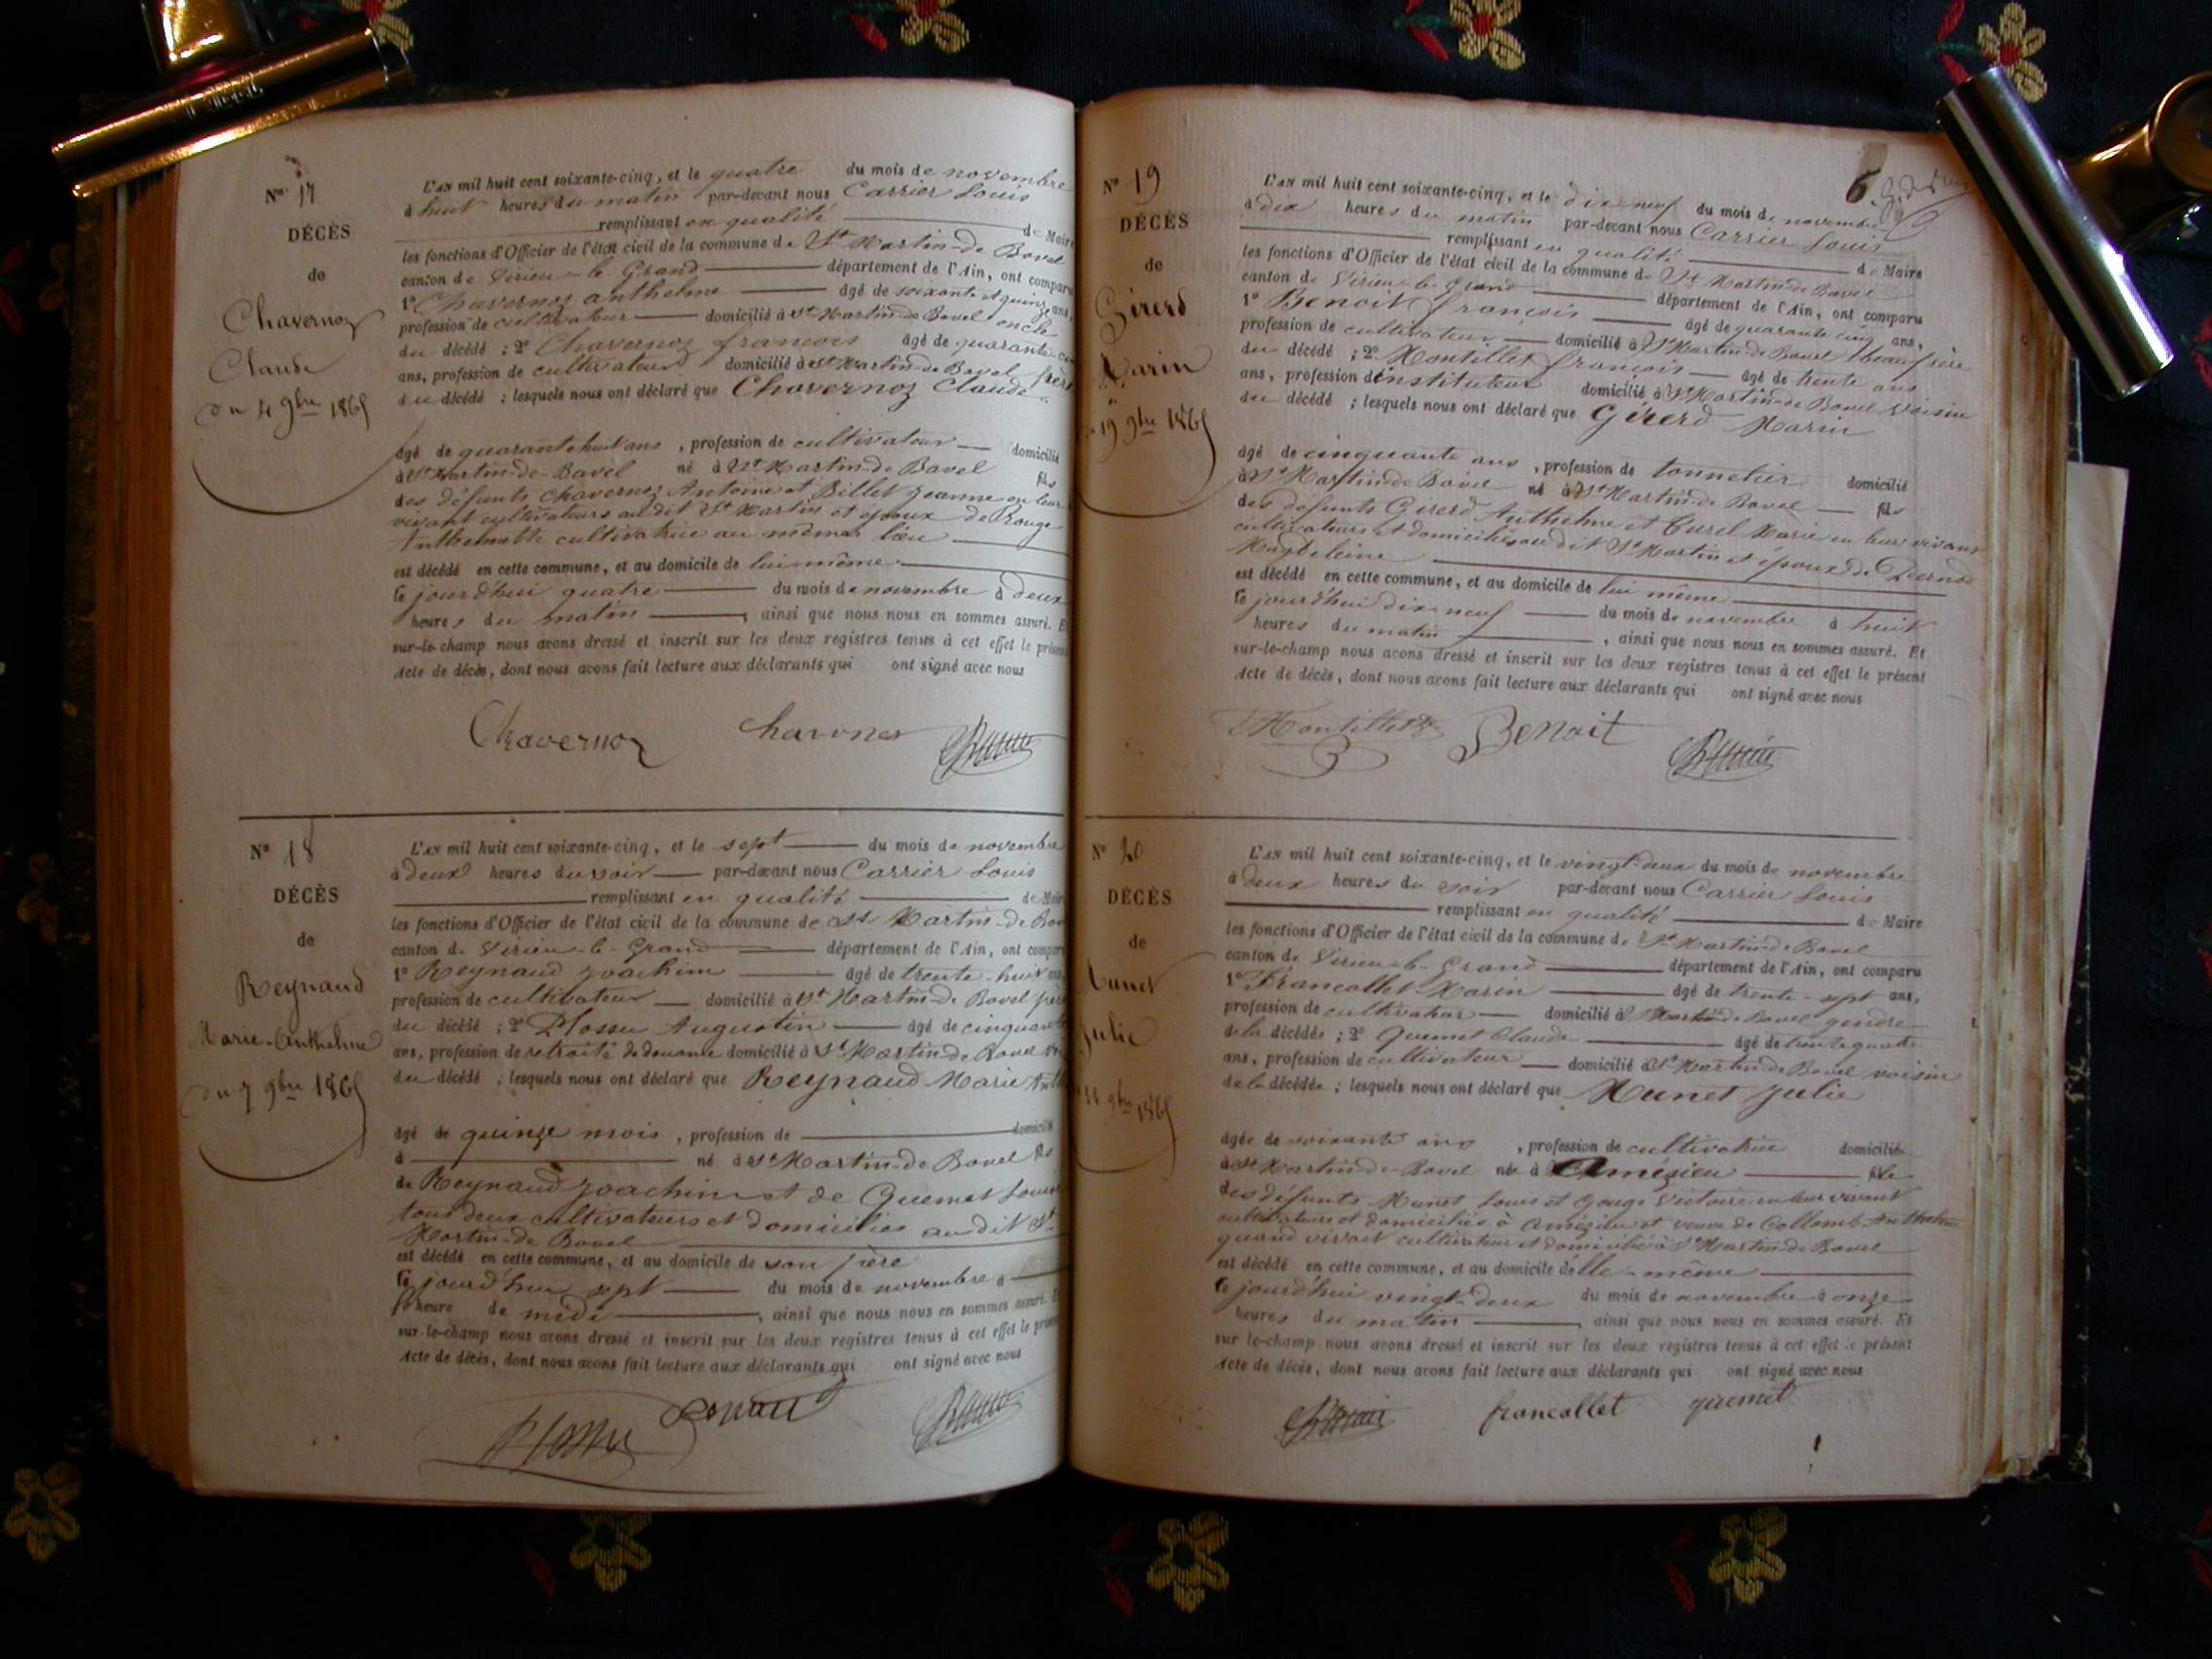 N° 17
DÉCÈS
de
Chavernoz
Claude
du 4 9bre 1865
L'AN mil huit cent soixante-cinq, et le quatre du mois de novembre
à huit heures du matin par-devant nous Carrier Louis
remplissant en qualité de Maire
les fonctions d'Officier de l'état civil de la commune de St Martin-de Bavel
canton de Virieu-le Grand département de l'Ain, ont comparu
1° Chavernoz anthelme âgé de soixante et quinze ans,
profession de cultivateur domicilié à St Martin-de Bavel oncle
du décédé ; 2° Chavernoz francois âgé de quarante
ans, profession de cultivateur domicilié à St Martin-de Bavel frère
du décédé ; lesquels nous ont déclaré que Chavernoz Claude
âgé de quarante huit ans , profession de cultivateur domicilié
à St Martin-de-Bavel né à St Martin-de Bavel fils
des défunts chavernoz Antoine et Billet Jeanne en leur
vivant cultivateurs audit St Martin et époux de Rouge
Anthelmette cultivatrice au même lieu
est décédé en cette commune, et au domicile de lui même
le jourd'hui quatre du mois de novembre à deux
heures du matin , ainsi que nous nous en sommes assuré. E
sur-le-champ nous avons dressé et inscrit sur les deux registres tenus à cet effet le présen
Acte de décès, dont nous avons fait lecture aux déclarants qui ont signé avec nous
Chavernoz
N° 18
DÉCÈS
de
Reynaud
Marie-Anthelme
du 7 9bre 1865
L'AN mil huit cent soixante-cinq, et le sept du mois de novembre
à deux heures du soir par-devant nous Carrier Louis
remplissant en qualité de Mair
les fonctions d'Officier de l'état civil de la commune de St Martin-de Bav
canton de Virieu-le-Grand département de l'Ain, ont compar
1° Reynaud Joachim âgé de trente-huit ans
profession de cultivateur domicilié à St Martin-de Bavel père
du décédé ; 2° Plossu Augustin âgé de cinquante
ans, profession de retraité de douane domicilié à St Martin-de Bavel
du décédé ; lesquels nous ont déclaré que Reynaud Marie Anth
âgé de quinze mois , profession de domicilié
à né à St Martin-de Bavel fils
de Reynaud Joachim et de Quemet Louise
tous deux cultivateurs et domiciliés audit St
Martin-de Bavel
est décédé en cette commune, et au domicile de son père
le jourd'hui sept du mois de novembre à
heure de midi , ainsi que nous nous en sommes assuré. E
sur-le-champ nous avons dressé et inscrit sur les deux registres tenus à cet effet le présen
Acte de décès, dont nous avons fait lecture aux déclarants qui ont signé avec nous
Plossu
N° 19
DÉCÈS
de
Girerd
Marin
19 9bre 1865
6
L'AN mil huit cent soixante-cinq, et le dix-neuf du mois de novembre
à dix heures du matin par-devant nous Carrier Louis
remplissant en qualité de Maire
les fonctions d'Officier de l'état civil de la commune de St Martin-de Bavel
canton de Virieu-le-grand département de l'Ain, ont comparu
1° Benoit françois âgé de quarante cinq ans,
profession de cultivateur domicilié à St Martin-de Bavel beau frère
du décédé ; 2° Montillet françois âgé de trente ans
ans, profession d'instituteur domicilié à St Martin-de Bavel voisin
du décédé ; lesquels nous ont déclaré que Gérerd Marin
âgé de cinquante ans , profession de tonnelier domicilié
à St Martin-de Bavel né à St Martin-de Bavel fils
des défunts Girerd Anthelme et Curel Marie en leur vivant
cultivateurs et domiciliés audit St Martin et époux de
Magdeleine
est décédé en cette commune, et au domicile de lui même
le jourd'hui dix-neuf du mois de novembre à huit
heures du matin , ainsi que nous nous en sommes assuré. Et
sur-le-champ nous avons dressé et inscrit sur les deux registres tenus à cet effet le présent
Acte de décès, dont nous avons fait lecture aux déclarants qui ont signé avec nous
Montillet Benoit
N° 20
DÉCÈS
de
Munet
Julie
9bre 1865
L'AN mil huit cent soixante-cinq, et le vingt-deux du mois de novembre
à deux heures du soir par-devant nous Carrier Louis
remplissant en qualité de Maire
les fonctions d'Officier de l'état civil de la commune de St Martin-de Bavel
canton de Virieu-le-Grand département de l'Ain, ont comparu
1° Francollet Marin âgé de trente-sept ans,
profession de cultivateur domicilié à St Martin-de Bavel gendre
de la décédée ; 2° Quemet Claude âgé de trente quatre
ans, profession de cultivateur domicilié à St Martin-de Bavel voisin
de la décédée ; lesquels nous ont déclaré que Munet Julie
âgée de soixante ans , profession de cultivatrice domiciliée
à St Martin-de-Bavel née à Amezieu fille
des défunts Munet Louis et Gouge Victoire en leur vivant
cultivateurs et domiciliés à Ameziou et veuve de Collomb Anthelme
quand vivait cultivateur et domicilié à St Martin-de Bavel
est décédé en cette commune, et au domicile d'elle-même
le jourd'hui vingt-deux du mois de novembre à onze
heures du matin , ainsi que nous nous en sommes assuré. Et
sur le-champ nous avons dressé et inscrit sur les deux registres tenus à cet effet le présent
Acte de décès, dont nous avons fait lecture aux déclarants qui ont signé avec nous
francollet quemet